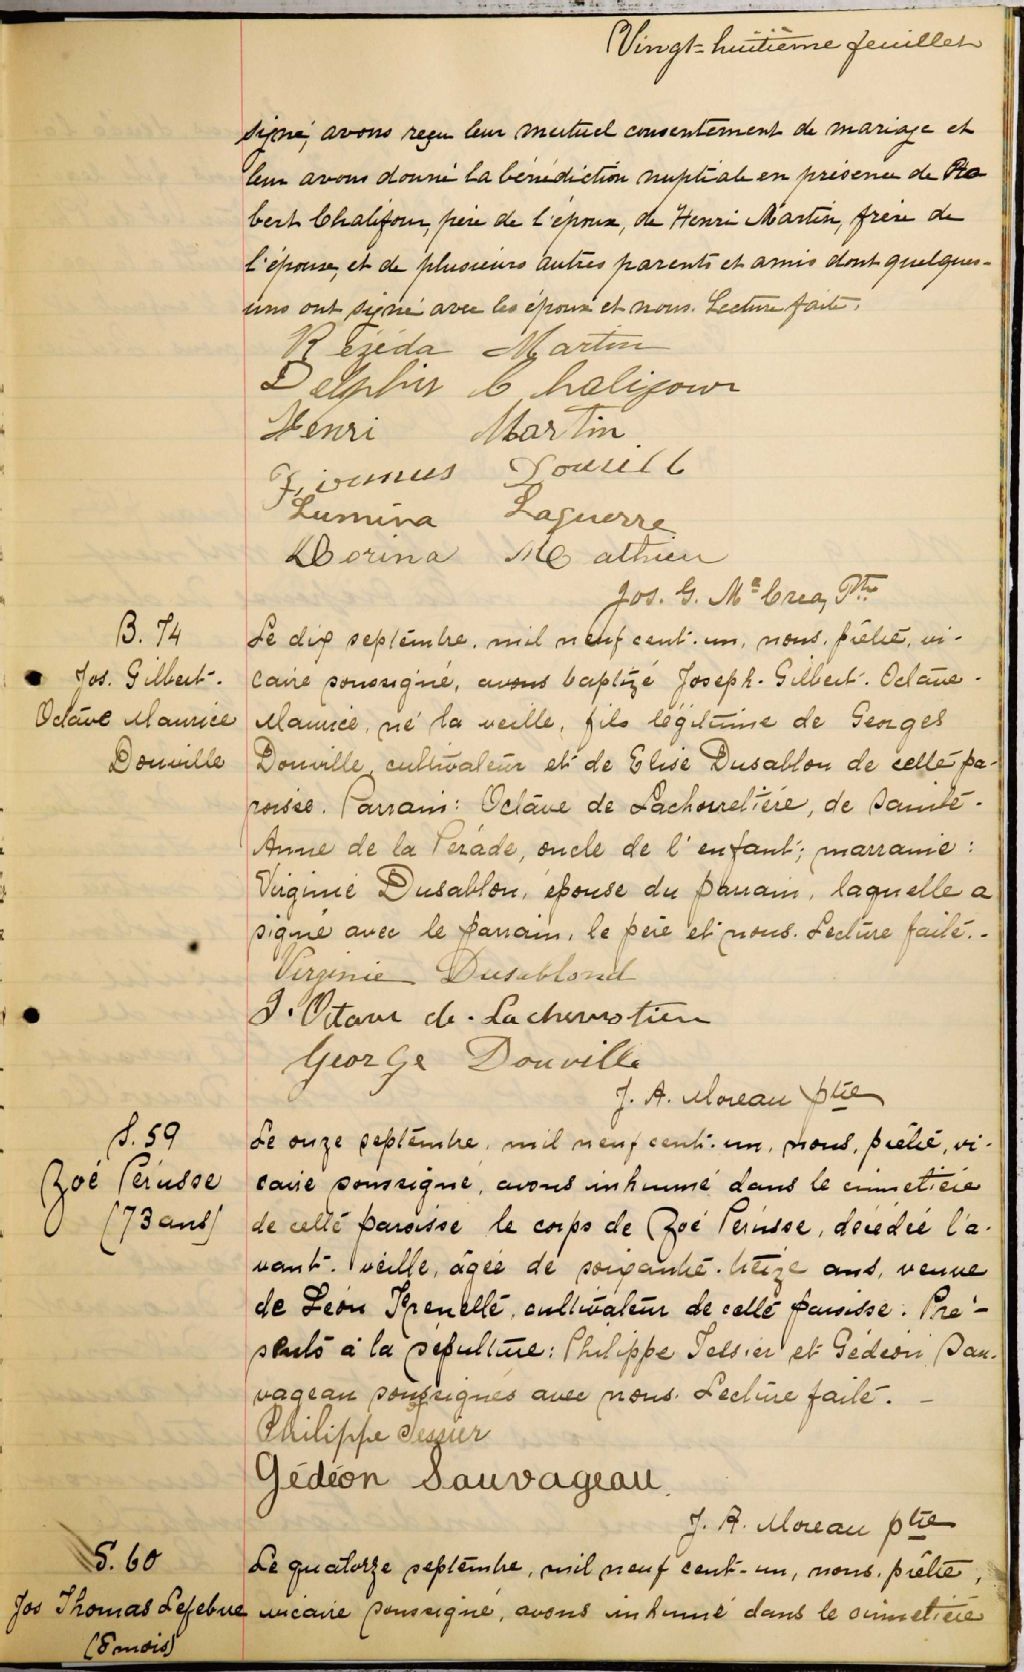 Vingt-huitième feuillet
signé, avons reçu leur mutuel consentement de mariage et
leur avons donné la bénédiction nuptiale en présence de Ro
bert Chalifour, père de l'époux, de Henri Martin, frère de
l'épouse, et de plusieurs autres parents et amis dont quelques-
uns ont signé avec les époux et nous. Lecture faite.
Rézéda Martin
Delphis Chalifour
Henri Martin
Lumina Laguerre
Dorina Mathieu
Jos. G. McCrea, Ptre
B. 74
Jos. Gilbert.
Octave Maurice
Douville
Le dix septembre, mil neuf cent-un, nous, prêtre, vi-
caire soussigné, avons baptizé Joseph-Gilbert-Octave-
Maurice, né la veille, fils légitime de Georges
Douville, cultivateur et de Elise Dusablon de cette pa-
roisse. Parrain: Octave de Lachevretière, de Sainte-
Anne de la Pérade, oncle de l'enfant; marraine:
Virginie Dusablon, épouse du parrain, laquelle a
signé avec le parrain, le père et nous. Lecture faite.-
Virginie Dusablond
J. Octave de Lachevrotière
George Douville
J. A. Moreau ptre
S. 59
Zoé Pérusse
(73 ans)
Le onze septembre, mil neuf cent-un, nous, prêtre, vi-
caire soussigné, avons inhumé dans le cimetière
de cette paroisse le corps de Zoé Pérusse, décédée l'a-
vant-veille, âgée de soixante-treize ans, veuve
de Léon Frenette, cultivateur de cette paroisse. Pré-
sents à la sépulture: Philippe Tessier et Gédéon Sau-
vageau soussignés avec nous. Lecture faite. -
Philippe Tessier
Gédéon Sauvageau
J. A. Moreau ptre
S. 60
Jos Thomas Lefebvre
(8 mois)
Le quatorze septembre, mil neuf cent-un, nous, prêtre,
vicaire soussigné, avons inhumé dans le cimetière